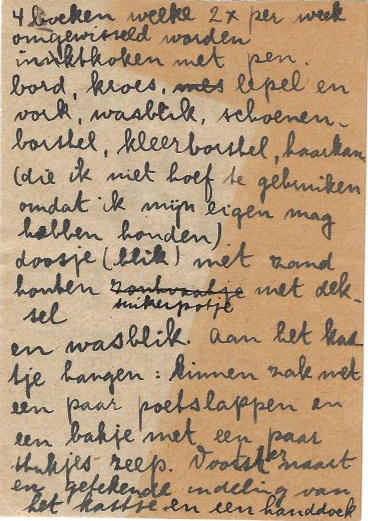 4 boeken welke 2x per week
omgewisseld worden
inktkoken met pen.
bord, kroes, mes lepel en
vork, wasblik, schoenen-
borstel, kleerborstel, haarkam
(die ik niet hoef te gebruiken
omdat ik mijn eigen mag
hebben houden)
doosje (blik) met zand
houten zoutvaatje met dek-
suikerpotje
sel
en wasblik. Aan het kas
tje hangen: linnen zak met
een paar poetslappen en
een bakje met een paar
stukjes zeep. Voorts ernaast
en getekende indeling van
het kastje en een handdoek